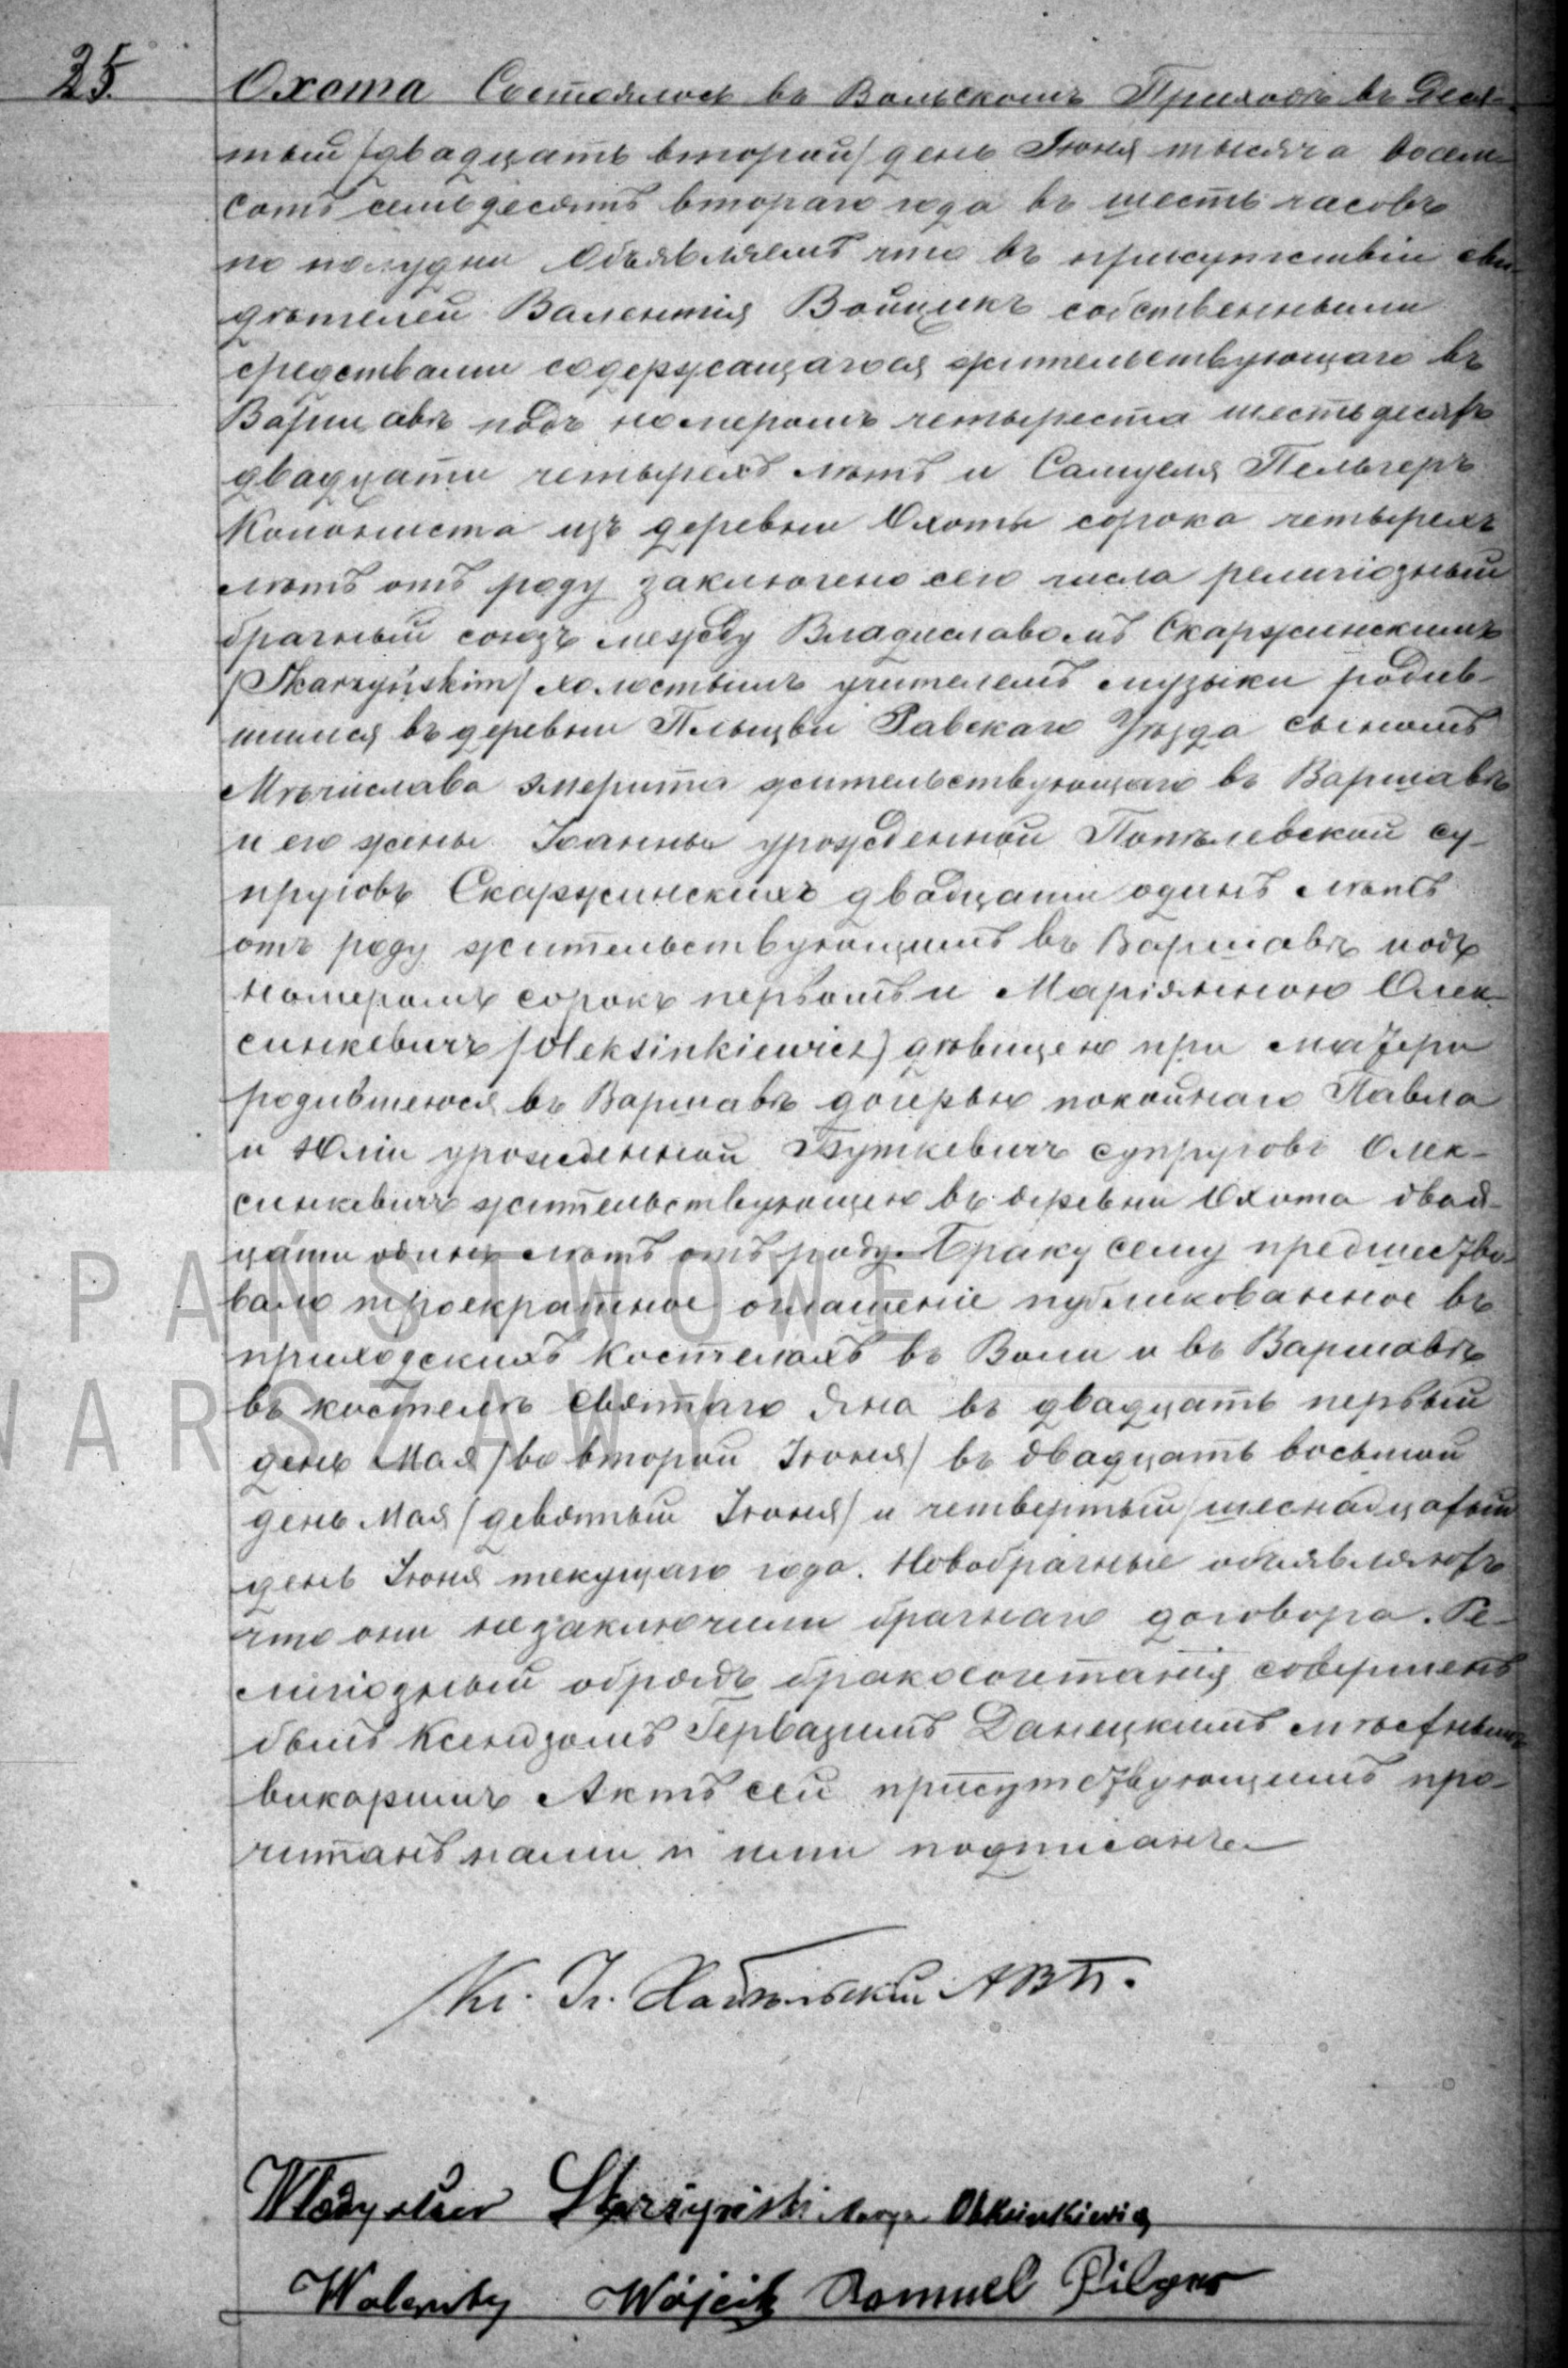 25
Охота Состоялось въ Вольскомъ Приходѣ въ Деся-
тый /двадцать второй/ день Іюня тысяча восемь
сотъ семьдесятъ втораго года въ шесть часовъ
по полудни Объявляемъ что въ присутствіи сви-
дѣтелей Валентія Войцикъ собственными
средствами содержащагося жительствующаго въ
Варшавѣ подъ номеромъ четыреста шестьдесятъ
двадцати четырехъ лѣтъ и Самуеля Пельгеръ
Колониста изъ деревни Охоты сорока четырехъ
лѣтъ отъ роду заключено сего числа религіозный
брачный союзъ между Владиславомъ Скаржинскимъ
/Skarzyńskim/ холостымъ учителемъ музыки родив-
шимся въ деревни Равскаго Уѣзда сыномъ
Мѣчислава эмерита жительствующаго въ Варшавѣ
и его жены Іоанны урожденной су-
пруговъ Скаржинскихъ двадцати одинъ лѣтъ
отъ роду жительствующимъ въ Варшавѣ подъ
номеромъ сорокъ первымъ и Маріянною Олек-
синкевичъ /Oleksinkiewicz/ дѣвицею при матери
родившеюся въ Варшавѣ дочерью покойнаго Павла
и Юліи урожденной Буткевичъ супруговъ Олек-
синкевичъ жительствующею въ деревни Охота двад-
цати одинъ лѣтъ отъ роду. Браку сему предшество-
вало троекратное оглашеніе публикованное въ
приходскихъ костелахъ въ Воли и въ Варшавѣ
въ костелѣ Святаго Яна въ двадцать первый
день Мая /во второй Іюня/ въ двадцать восьмой
день Мая /девятый Іюня/ и четвертый /шеснадцатый
день Іюня текущаго года. Новобрачные объявляютъ
что они незаключили брачнаго договора. Ре-
лигіозный обрядъ бракосочетанія совершенъ
былъ Ксендзомъ Гервазимъ Данецкимъ мѣстнымъ
викаріимъ Актъ сей присутствующимъ про-
читанъ нами и ими подписанъ
Кс. Іг. А В П.
Władysław Skarzyński Marya Oleksinkiewicz
Walenty Wójcik Samuel Pilger
PAŃSTWOWE
WARSZAWY